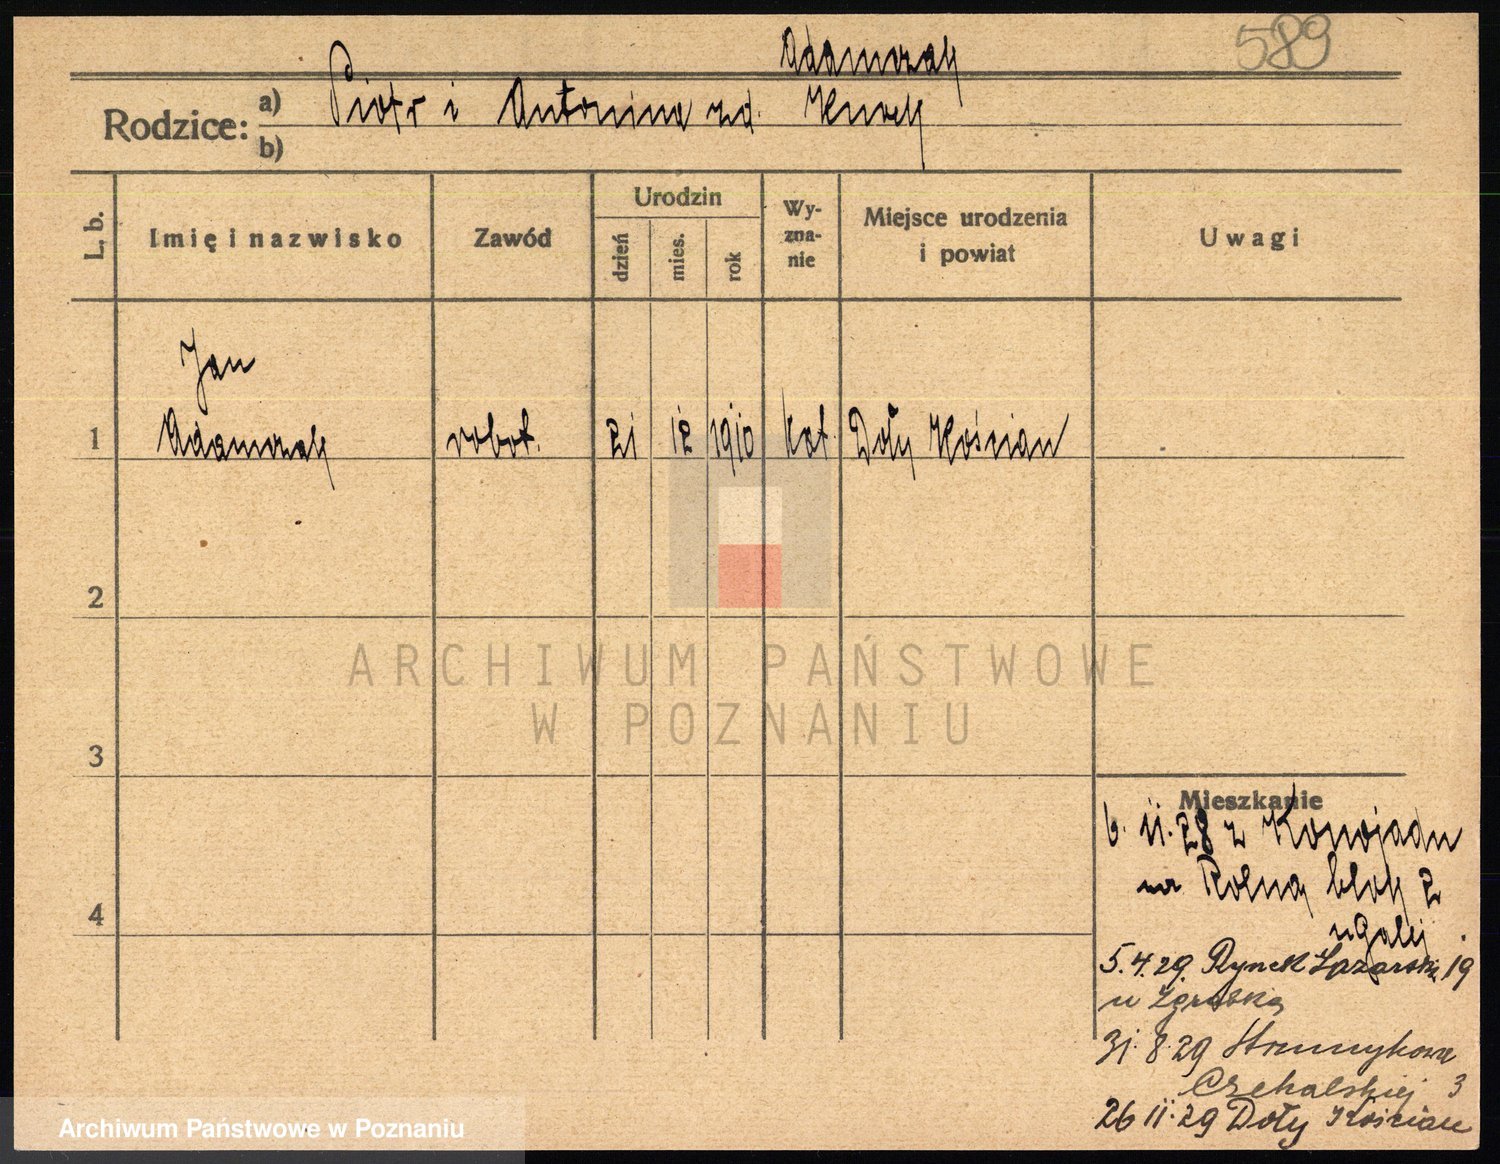 589
Adamczak
Rodzice: a) Piotr i Antonina zd.
b)
L. b.
Imię i nazwisko
Zawód
Urodzin
dzień
mies.
rok
Wy-
zna-
nie
Miejsce urodzenia
i powiat
Uwagi
Jan
1 Adamczak robot. 21 12 1910 kat. Doły Kościan
2
3
4
ARCHIWUM PAŃSTWOWE
W POZNANIU
Mieszkanie
6. 11. 28 z Konojadu
na Rolną blok 2
5. 4. 29. Rynek Łazarski 19
u
31. 8. 29 Strumykowa
3
26 11. 29 Doły Kościan
Archiwum Państwowe w Poznaniu